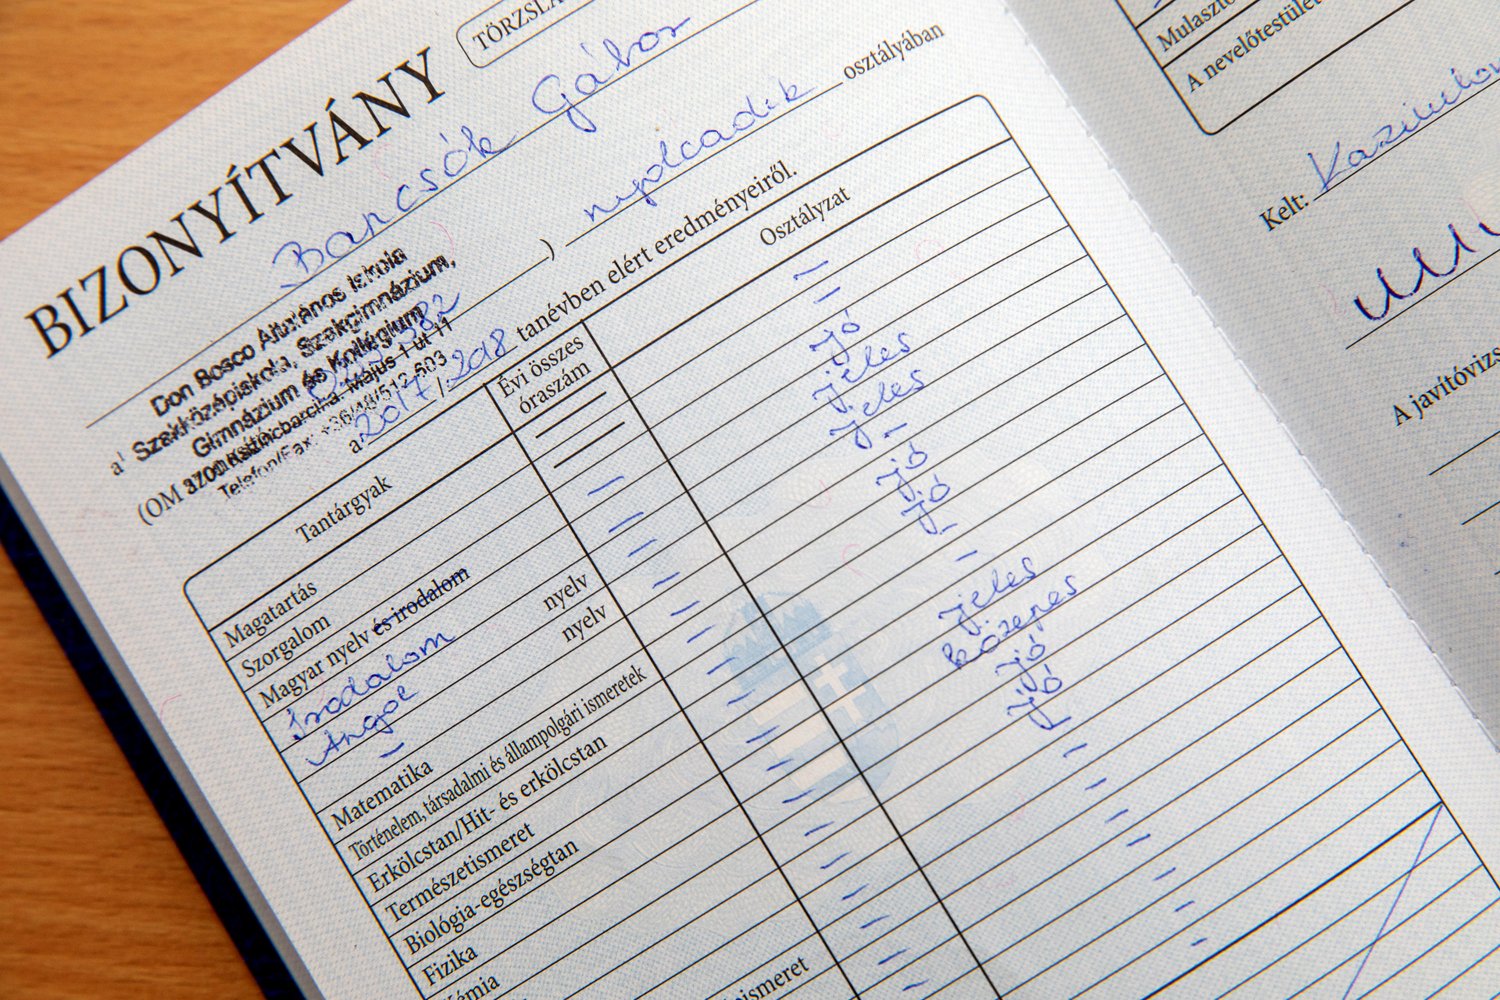 BIZONYÍTVÁNY
TÖRZSLA
Bancsók Gábor
Don Bosco Általános Iskola
a' Szakközépiskola, Szakgimnázium,
Gimnázium és Kollégium
Kazincbarcika, Május 1 út 11
Telefon/Fax: +36/48/512-603
(OM azonosító: )
nyolcadik osztályában
a 2017/2018 tanévben elért eredményeiről.
Tantárgyak
Évi összes
óraszám
Osztályzat
Magatartás – –
Szorgalom – –
Magyar nyelv és irodalom – jó
Irodalom nyelv – jeles
Angol nyelv – jeles
– – –
Matematika – jó
Történelem, társadalmi és állampolgári ismeretek – jó
Erkölcstan/Hit- és erkölcstan – –
Természetismeret – –
Biológia-egészségtan – jeles
Fizika – közepes
Kémia – jó
ismeret – jó
Mulaszto
A nevelőtestület
Kelt:
A javítóvizs